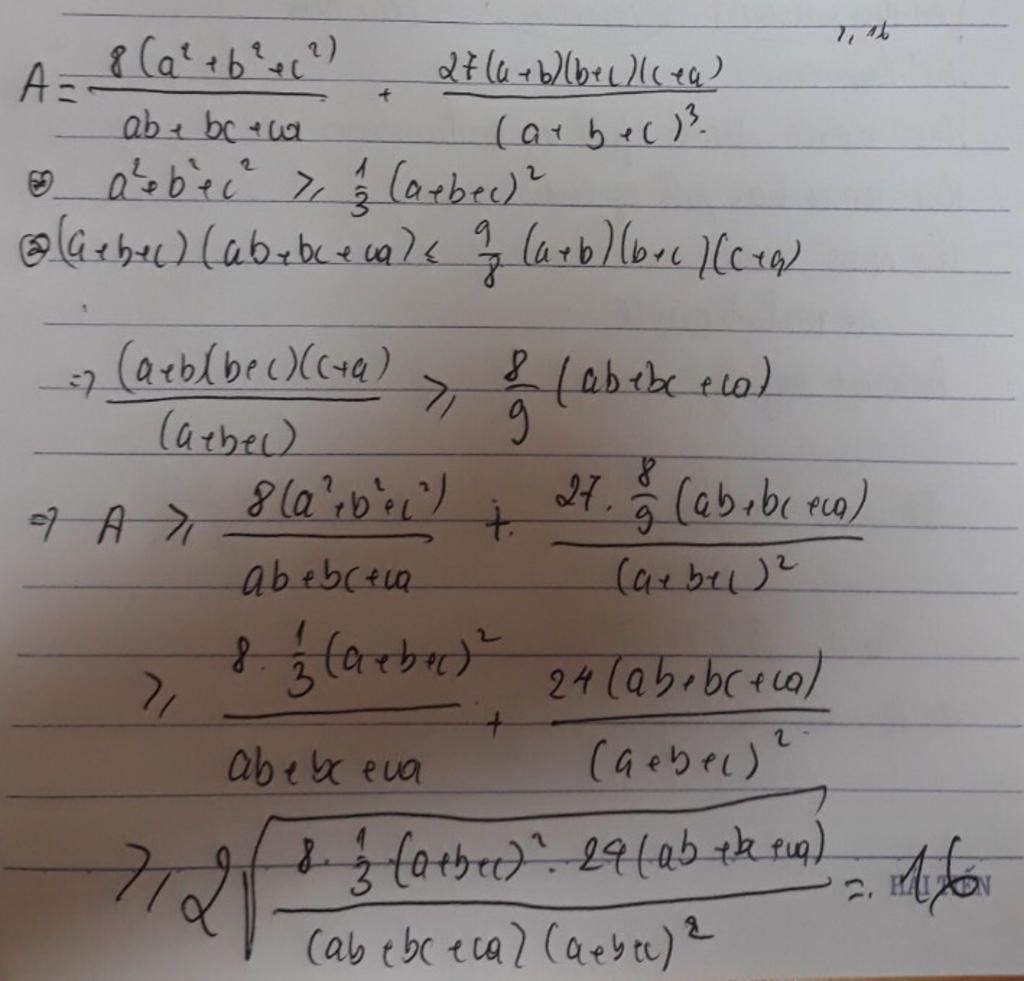 ≥ 16
A = \frac{8(a²+b²+c²)}{ab+bc+ca} + \frac{27(a+b)(b+c)(c+a)}{(a+b+c)³}.
a²+b²+c² ≥ \frac{1}{3}(a+b+c)²
(a+b+c)(ab+bc+ca) ≤ \frac{9}{8}(a+b)(b+c)(c+a)
⇒ \frac{(a+b)(b+c)(c+a)}{(a+b+c)} ≥ \frac{8}{9}(ab+bc+ca)
⇒ A ≥ \frac{8(a²+b²+c²)}{ab+bc+ca} + \frac{27.\frac{8}{9}(ab+bc+ca)}{(a+b+c)²}
≥ \frac{8.\frac{1}{3}(a+b+c)²}{ab+bc+ca} + \frac{24(ab+bc+ca)}{(a+b+c)²}
≥ 2\sqrt{\frac{8.\frac{1}{3}.(a+b+c)².24(ab+bc+ca)}{(ab+bc+ca)(a+b+c)²}} = 16
HẢI TIẾN